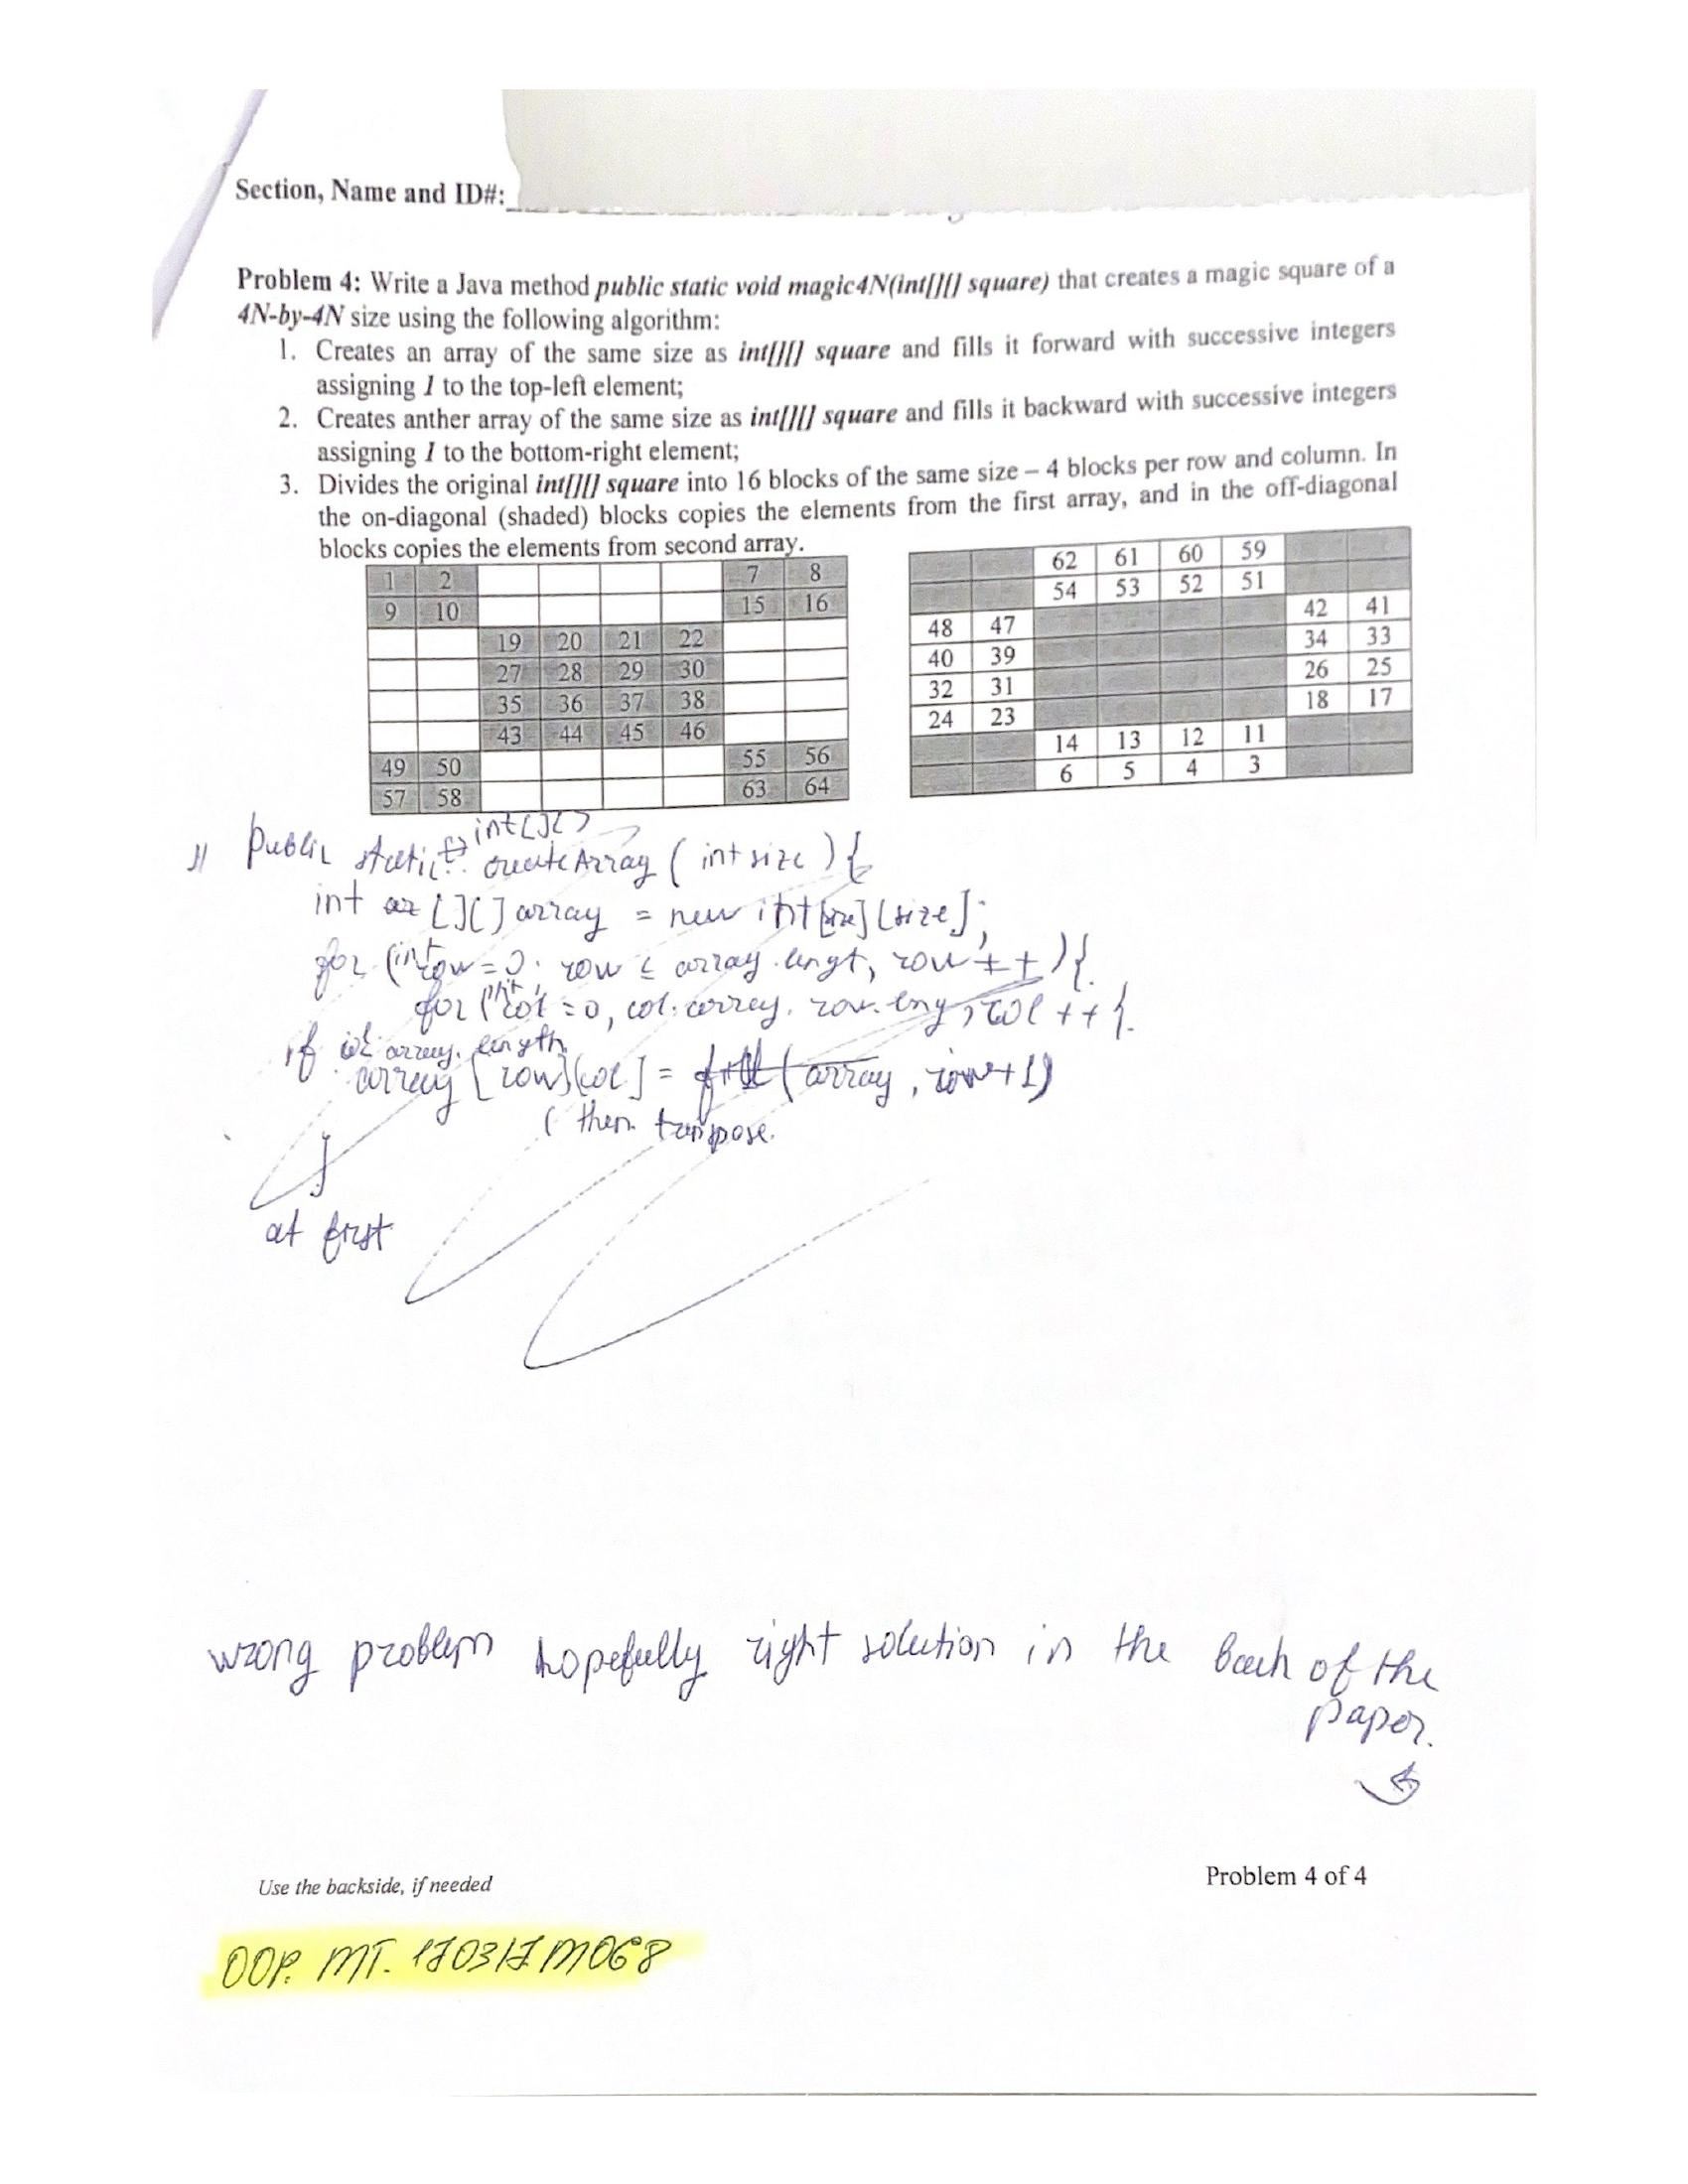 Section, Name and ID#:
Problem 4: Write a Java method public static void magic4N(int[][] square) that creates a magic square of a
4N-by-4N size using the following algorithm:
1. Creates an array of the same size as int[][] square and fills it forward with successive integers
assigning 1 to the top-left element;
2. Creates anther array of the same size as int[][] square and fills it backward with successive integers
assigning 1 to the bottom-right element;
3. Divides the original int[][] square into 16 blocks of the same size – 4 blocks per row and column. In
the on-diagonal (shaded) blocks copies the elements from the first array, and in the off-diagonal
blocks copies the elements from second array.
1 2 7 8
9 10 15 16
19 20 21 22
27 28 29 30
35 36 37 38
43 44 45 46
49 50 55 56
57 58 63 64
62 61 60 59
54 53 52 51
48 47 42 41
40 39 34 33
32 31 26 25
24 23 18 17
14 13 12 11
6 5 4 3
int[][]
public static createArray (int size) {
int [][] array = new int[size][size];
for (int row=0; row ≤ array.lengt, row++){
for (int col=0, col. array. row. leng, col++{
if col array. length
array [row][col] = fill (array, row+1)
( then transpose.
}
at first
wrong problem hopefully right solution in the back of the
paper.
Use the backside, if needed
Problem 4 of 4
OOP. MT. 170317 M068